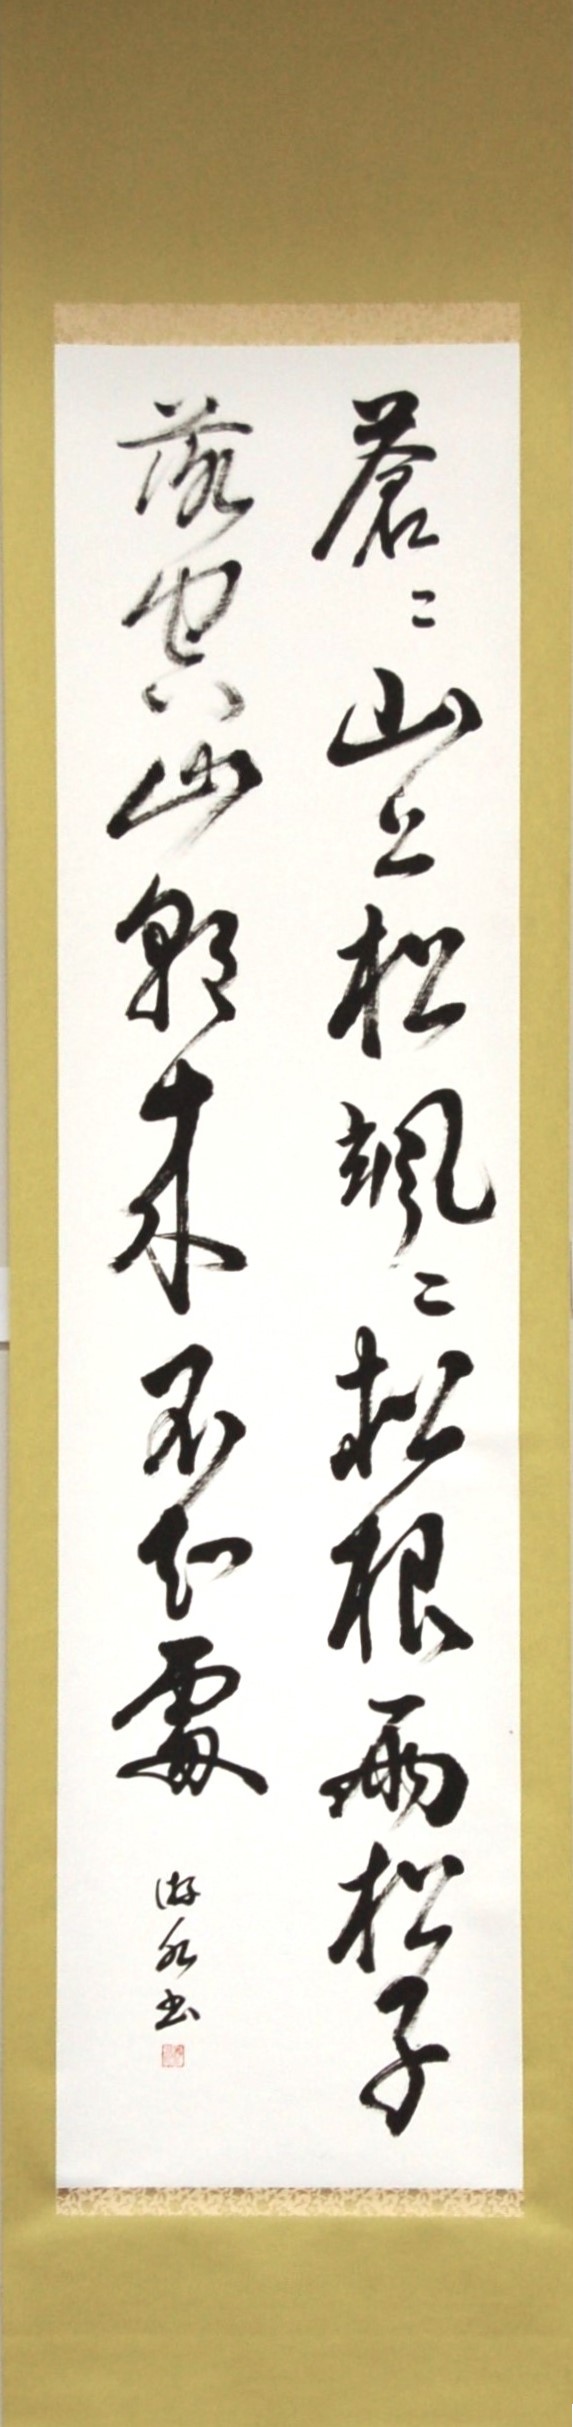 蒼々山上松颯々松根雨松子
落空山朝来不知處
游水書